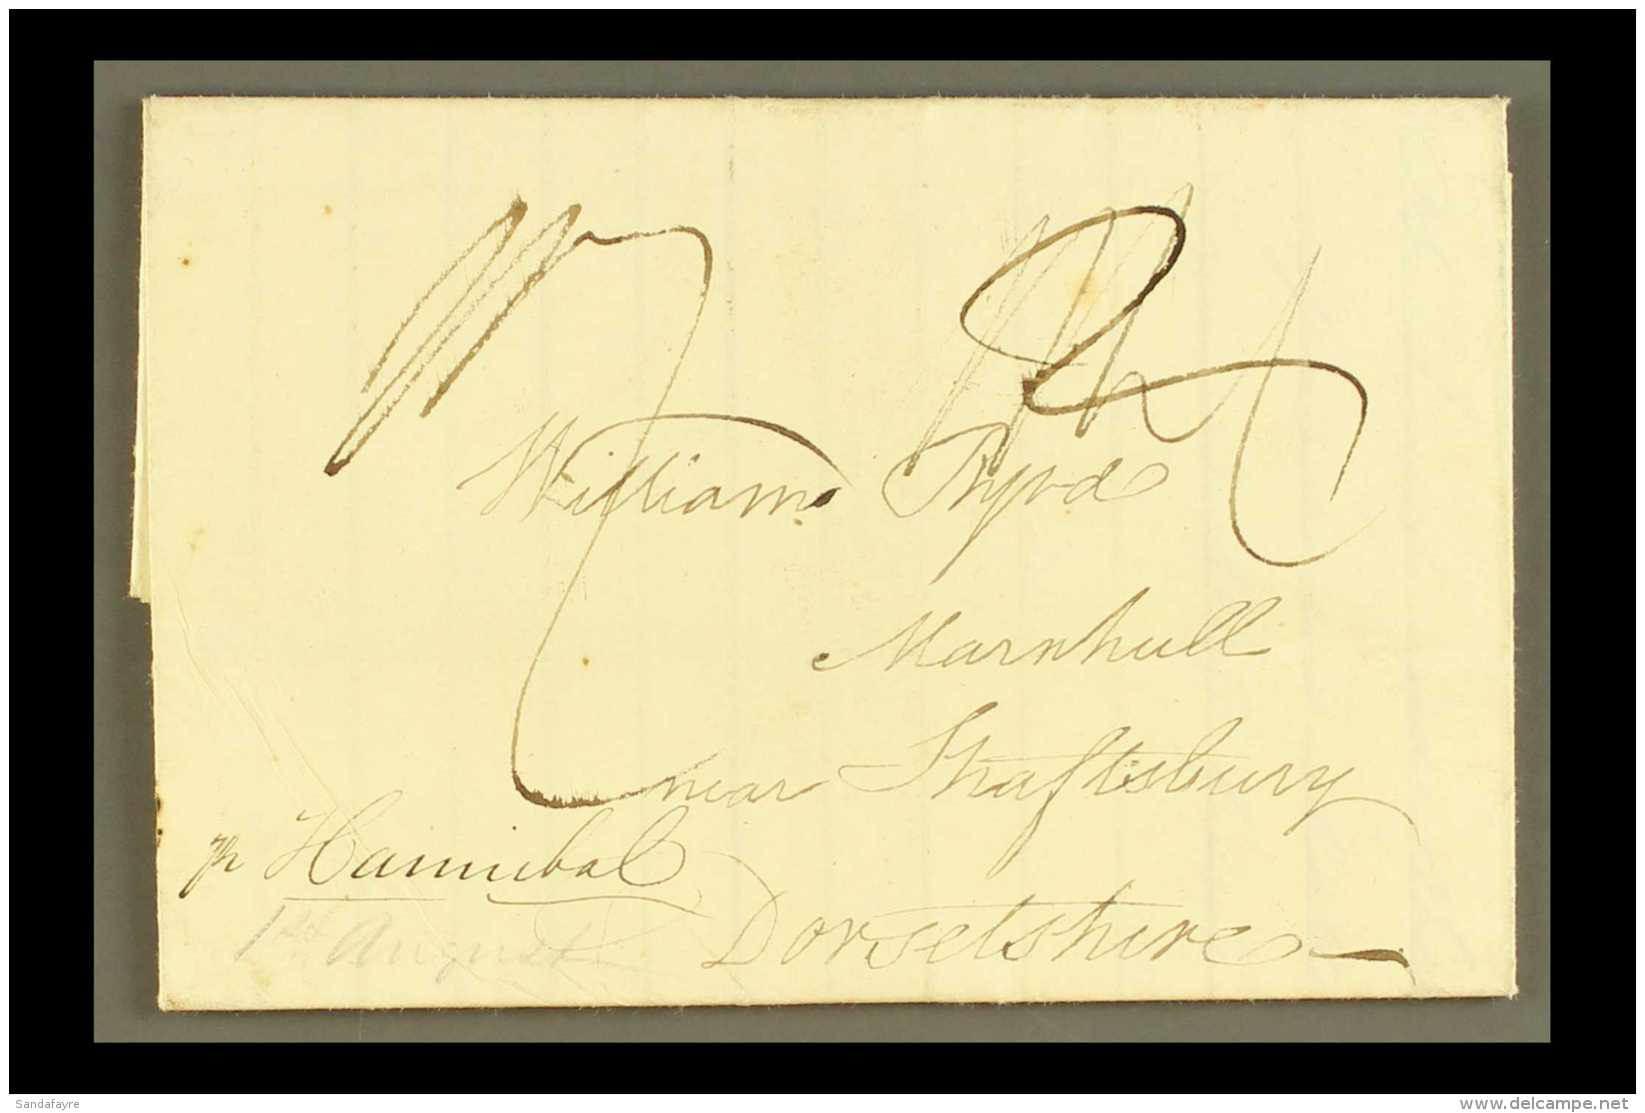 William
Marnhull
near Shaftsbury
Dorsetshire
pr Hannibal
1st August
Sandafayre
www.delcampe.net